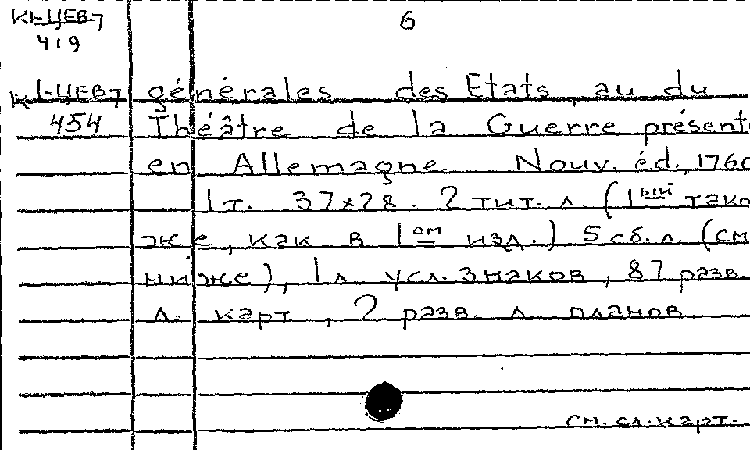 К1-ЦЕВ7
419
6
К1-ЦЕВ7 générales des Etats au du
454 Théâtre de la Guerre présent
en Allemagne Nouv. éd., 1760
1т. 37x28. 2 тит. л. (1ый тако
же, как в 1ом изд.) 5 сб. л. (см
ниже), 1 л усл. знаков, 87 разв.
л. карт, 2 разв. л планов
см. сл. карт.